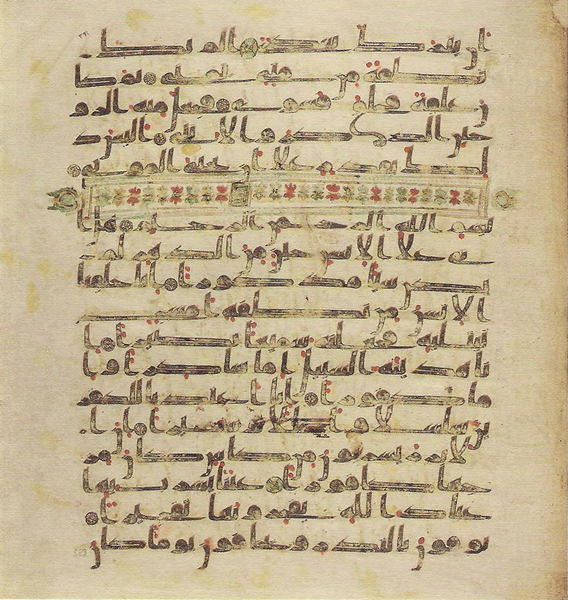 ان يترك سدى الم يك
نطفة من منى يمنى ثم كا
ن علقة فخلق فسوى فجعل منه الزو
جين الذكر و الانثى اليس ذ
لك بقدر على ان يحى الموتى
بسم الله الرحمن الرحيم هل ا
تى على الانسن حين من الدهر لم
يكن شيا مذكورا انا خلقنا
الانسن من نطفة امشج
نبتليه فجعلنه سميعا بصيرا ا
نا هدينه السبيل اما شاكرا و ا
ما كفورا انا اعتدنا للكفر
ين سلسلا و اغللا و سعيرا ان ا
لابرر يشربون من كاس كان مز
جها كافورا عينا يشرب بها
عباد الله يفجرونها تفجيرا
يوفون بالنذر و يخافون يوما كان